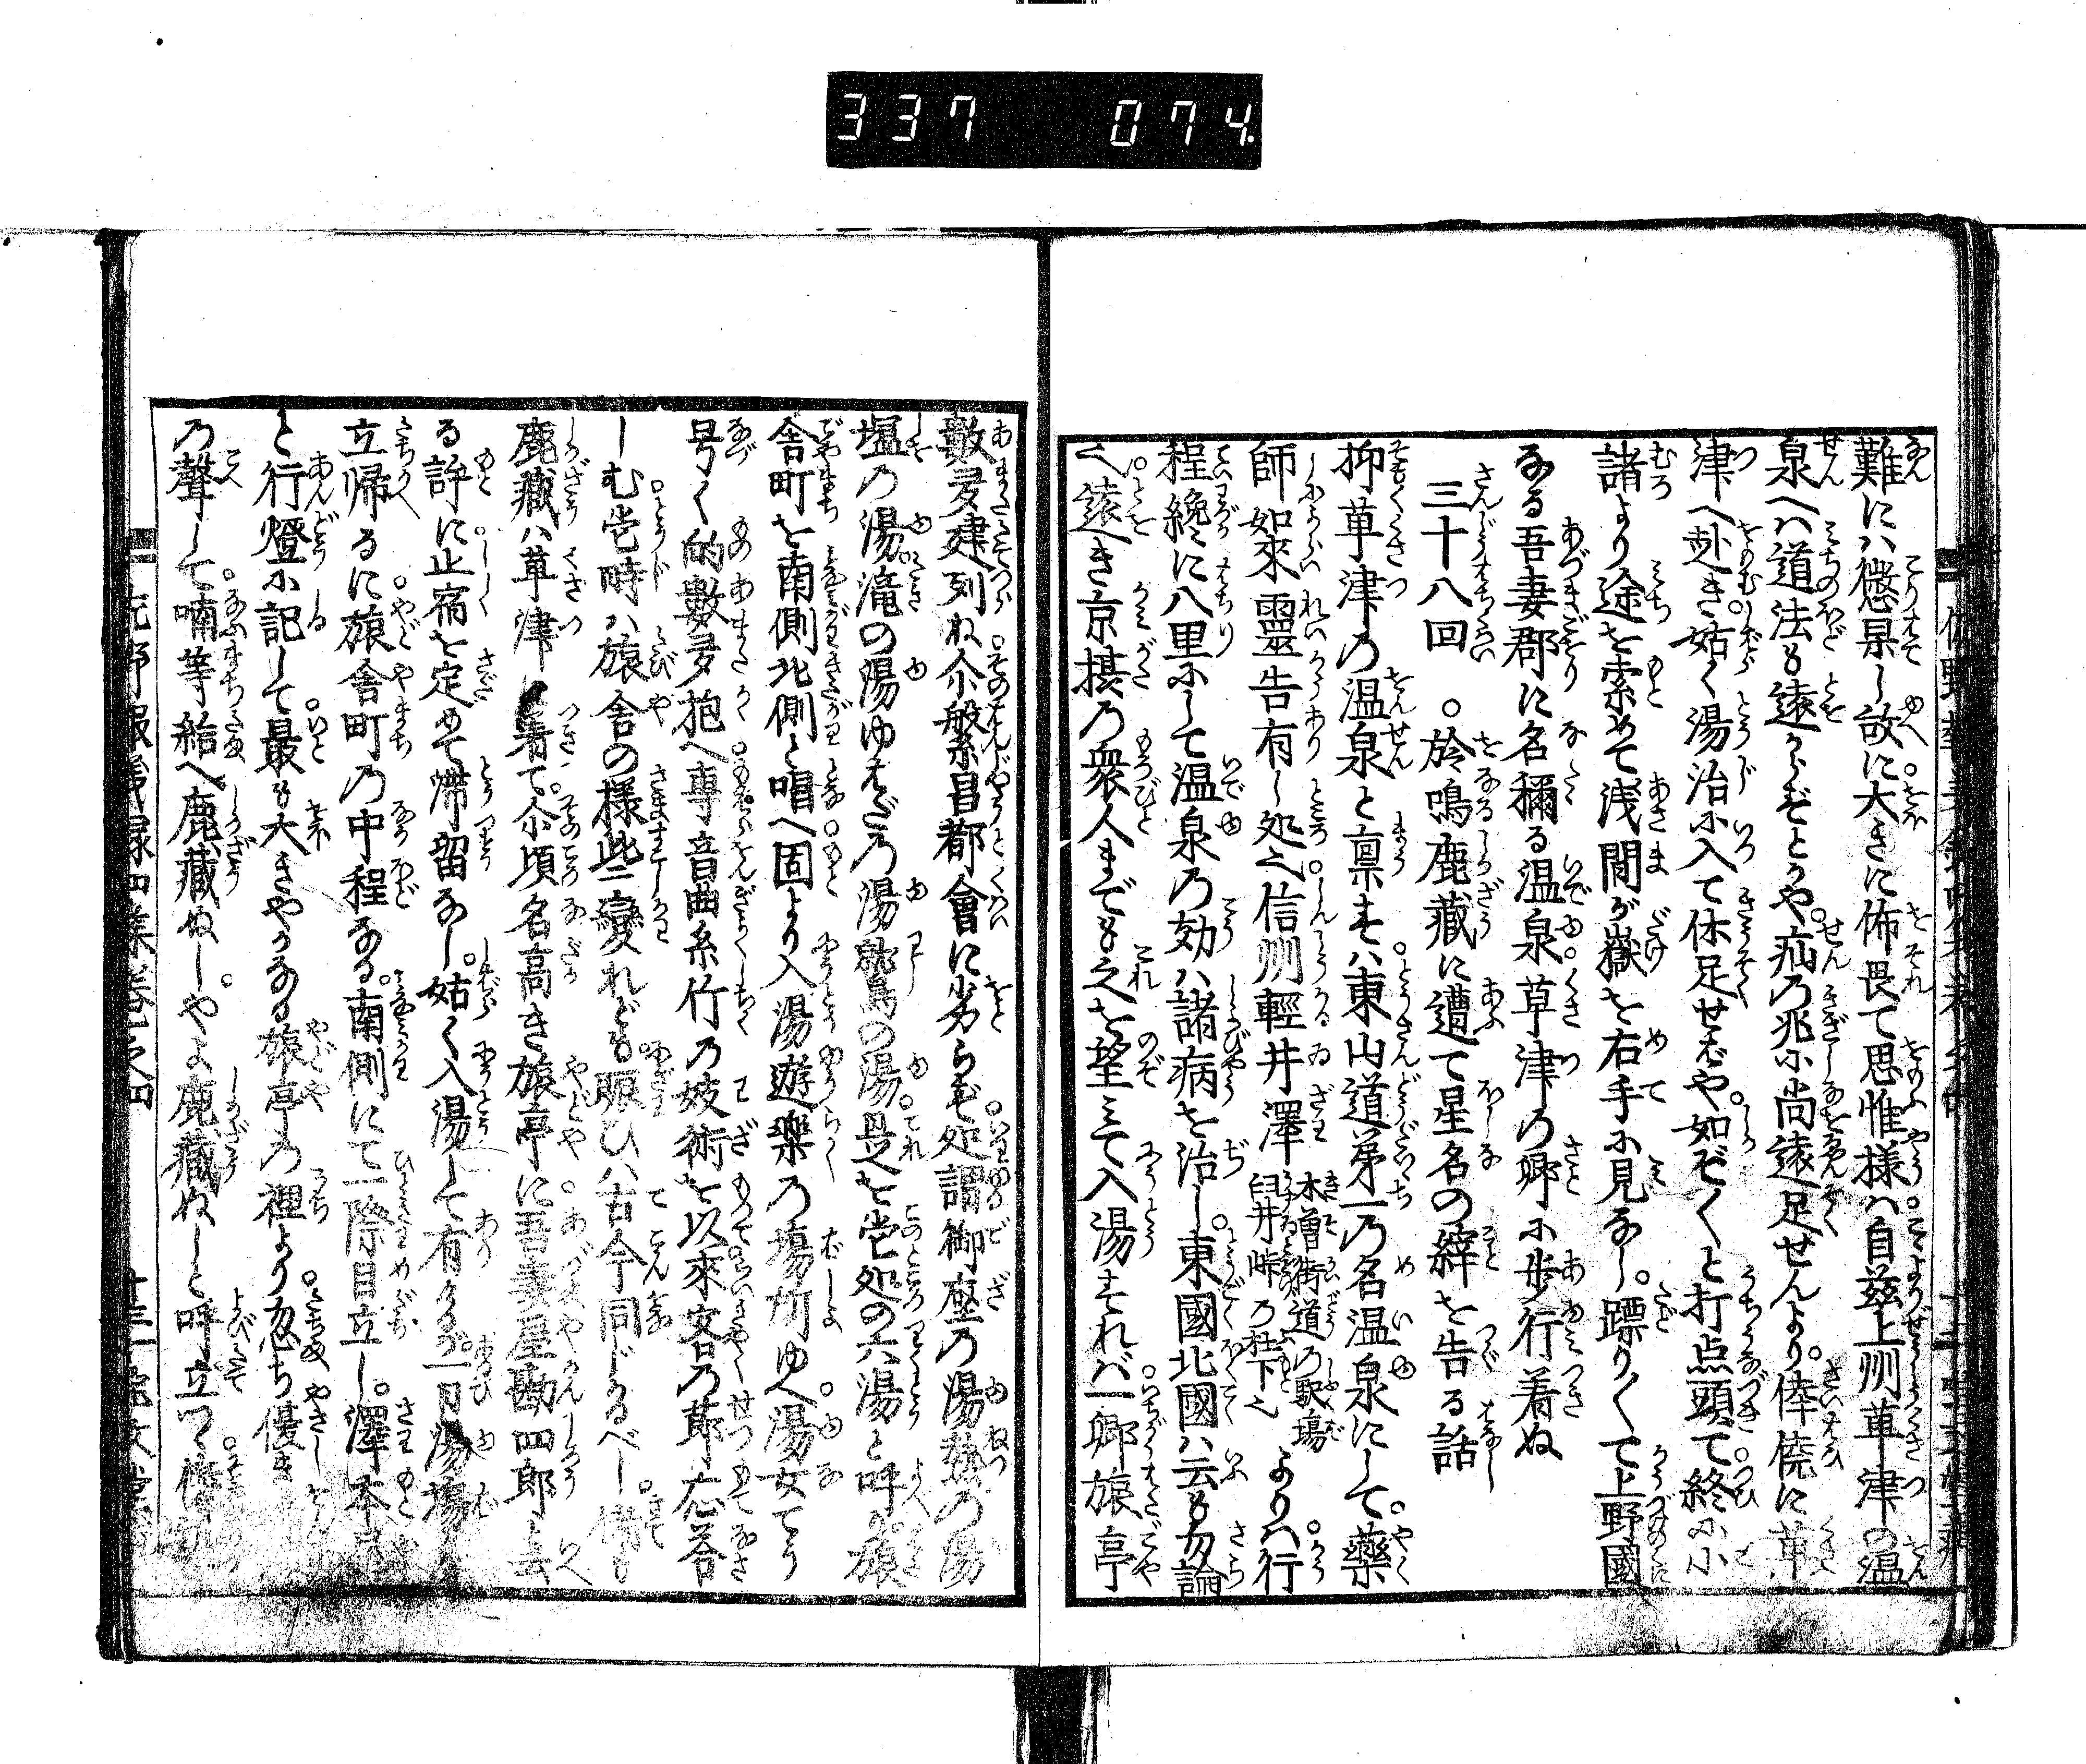 337 074.
難に懲果し故に大きに怖畏て思惟様ハ自茲上州草津の温
泉へハ道法も遠からずとかや疝の兆小尚遠足せんより倖僥に草
津へ赴き姑く湯治小入て休足せばや如ぞくと打点頭て終に小
諸より途を索めて浅間が嶽を右手小見なし蹀りくて上野國
なる吾妻郡に名稱る温泉草津の郷小歩行着ぬ
三十八回 ○於鳴鹿藏に遭て星名の縡を告る話
抑草津の温泉と稟すハ東山道第一の名温泉にして藥
師如來靈告有し処也信州輕井澤木曽街道の駅場臼井峠の杜下也よりハ行
程纔に八里にして温泉の効ハ諸病を治し東國北國ハ云も勿論
遠き京摂の衆人までも之を望みて入湯すれバ一郷旅亭
數多建列ね尒般昌都會に劣らず処謂御座の湯熱の湯
塩の湯滝の湯ゆすぎの湯鷲の湯是を尚処の六湯と呼旅
舎町を南側北側と唱へ固より入湯遊樂の塲所ゆへ湯女てう
号く的數多抱へ專音曲糸竹の妓術を以來客の莭応荅
しむ當時ハ旅舎の様些変れども賑ひハ古今同じかるべし偖も
鹿藏ハ草津に着て尒頃名高き旅亭に吾妻屋勘四郎云
る許に止宿を定めて滞留なし姑く入湯して有けるが一日湯場
立帰るに旅舎町の中程なる南側にて一際目立し澤本
と行燈小記して最も大きやかなる旅亭の裡より忽ち優き
の聲して喃等給へ鹿藏ぬしやよ鹿藏ぬしと呼立つ